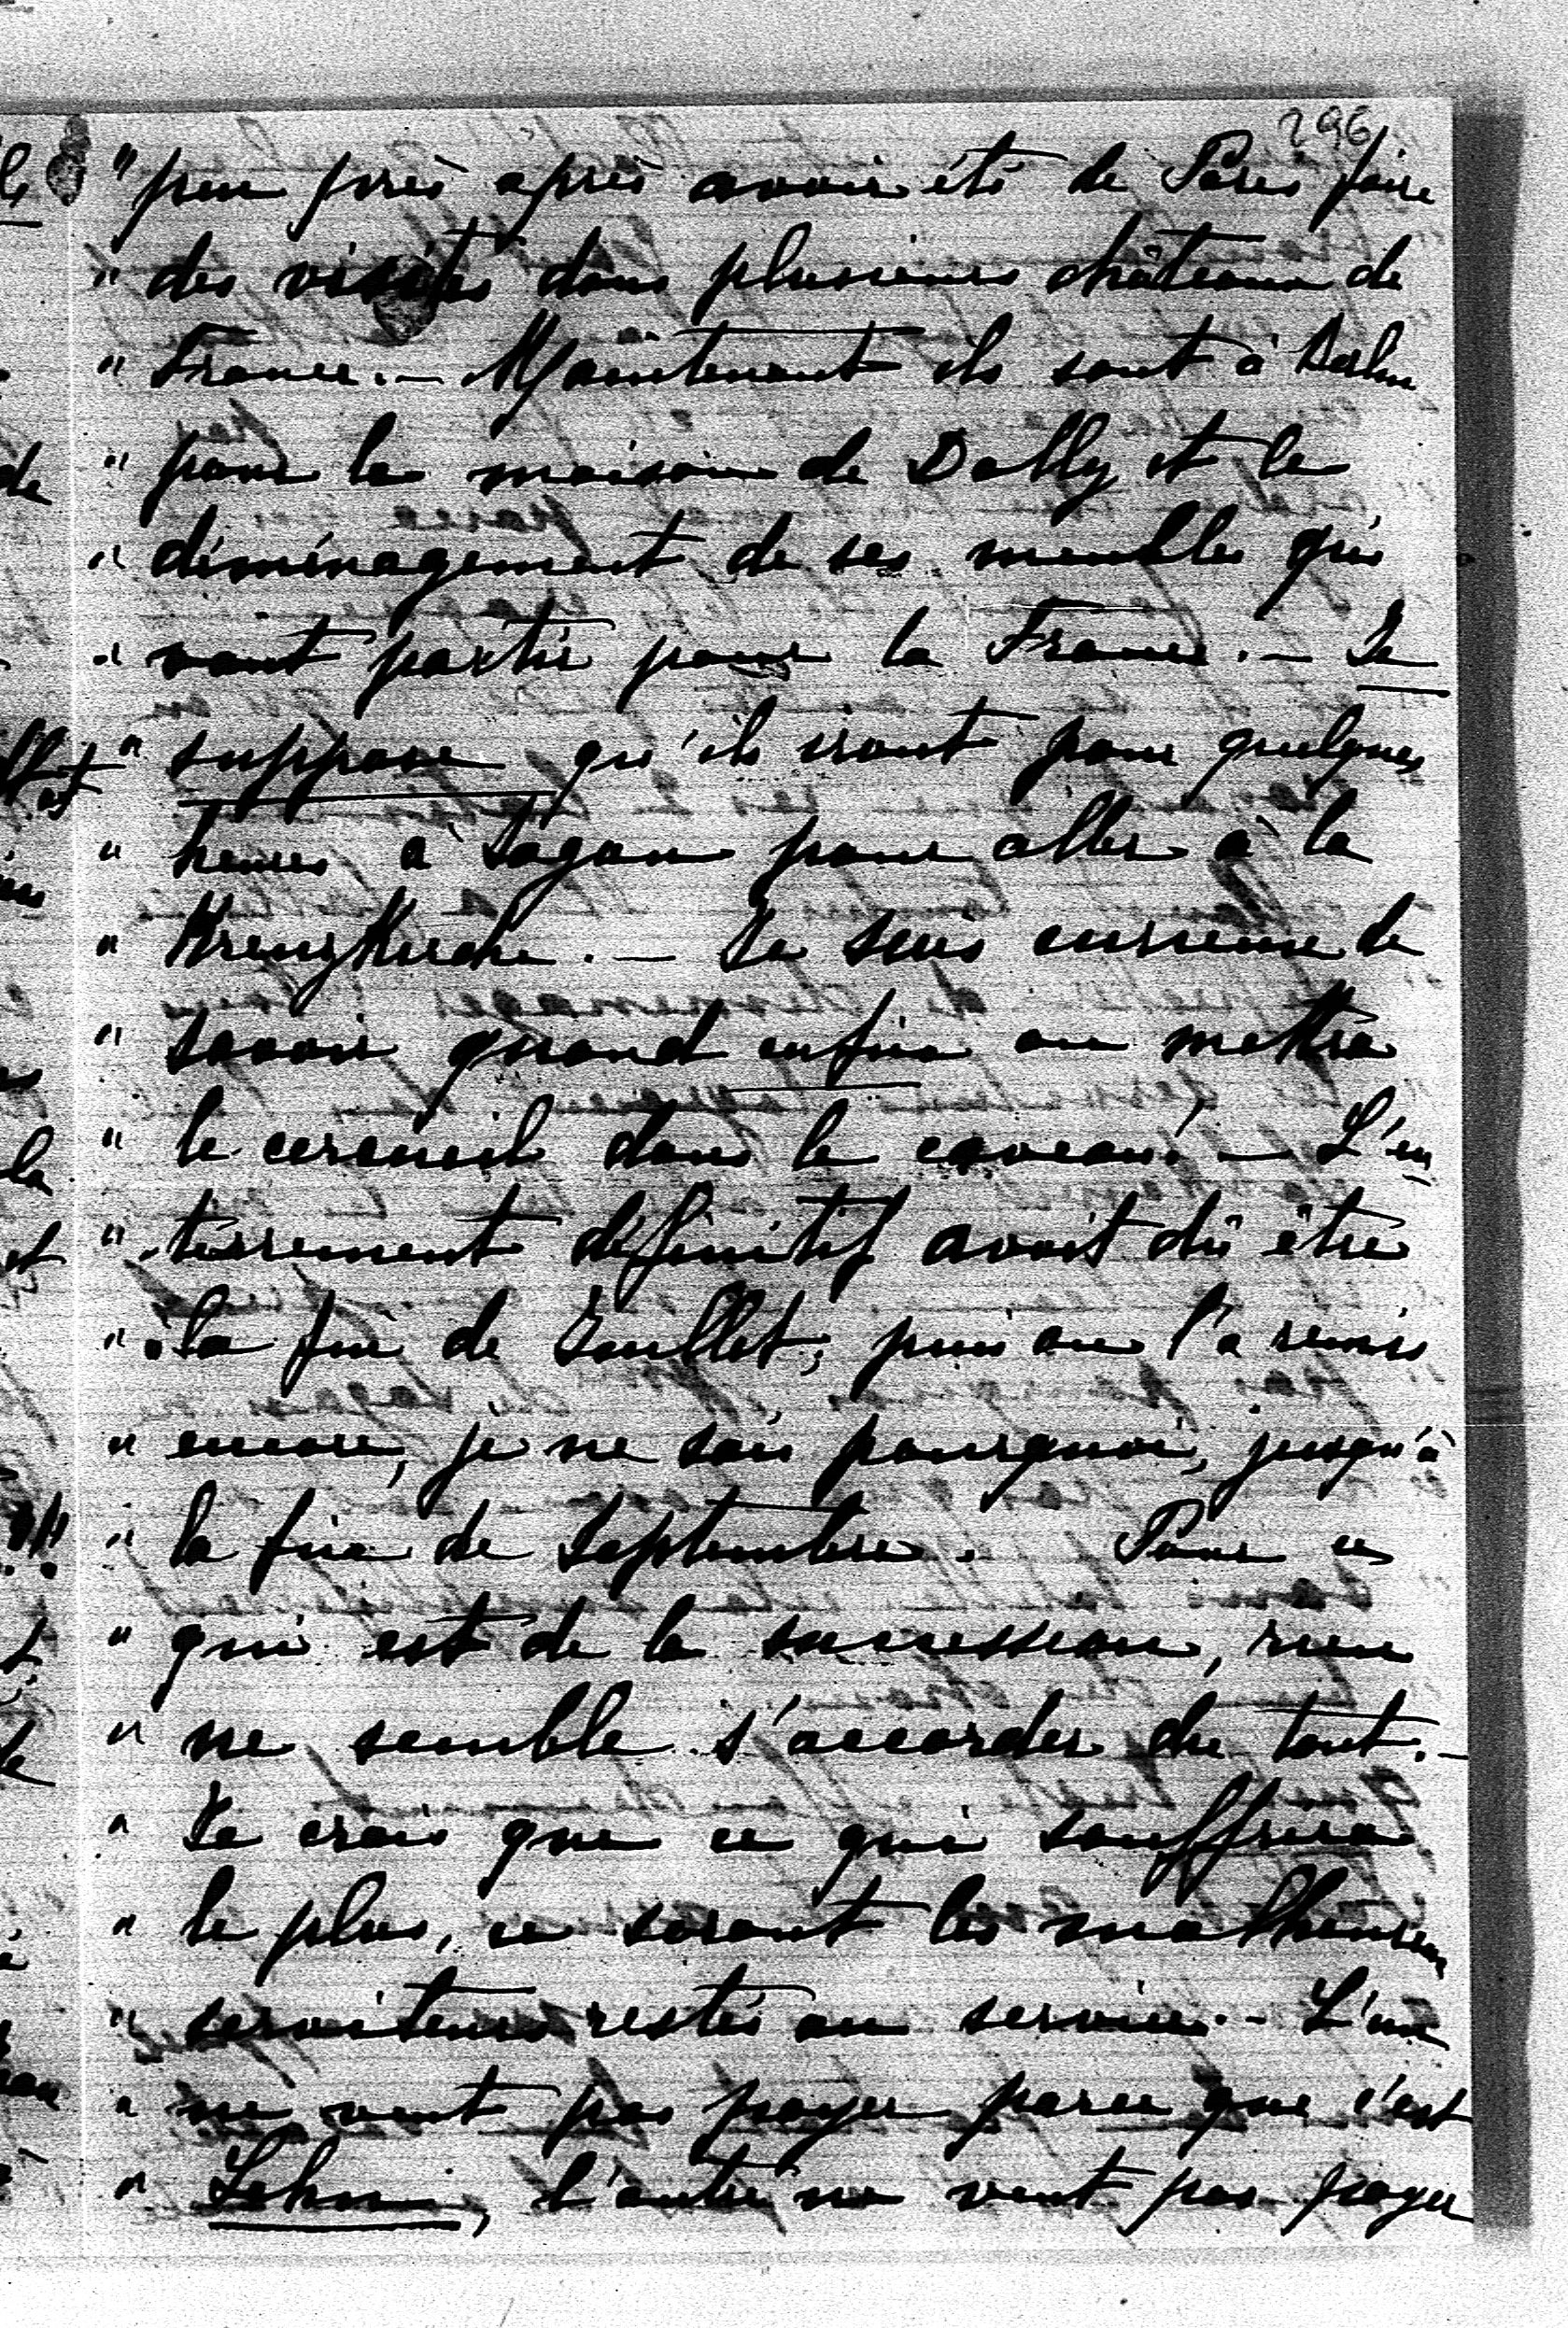 296
" peu près après avoir été de Paris faire
" des visites dans plusieurs châteaux de
" France. — Maintenant ils sont à Berlin
" pour la maison de Dolly et le
" déménagement de ses meubles qui
" vont partir pour la France. — Je
" suppose qu'ils iront pour quelques
" heures à Sagan pour aller à la
" Kreuzkirche. — Je suis curieuse de
" savoir quand enfin on mettra
" le cercueil dans le caveau! — L'en
" -terrement définitif avait dû être
" la fin de Juillet; puis on l'a remis
" encore, je ne sais pourquoi, jusqu'à
" la fin de Septembre. Pour ce
" qui est de la succession, rien
" ne semble s'accorder du tout. —
" Je crois que ce qui souffrira
" le plus, ce seront les malheureux
" serviteurs restés au service. — L'un
" ne veut pas payer parce que c'est
" Lehn, l'autre ne veut pas payer